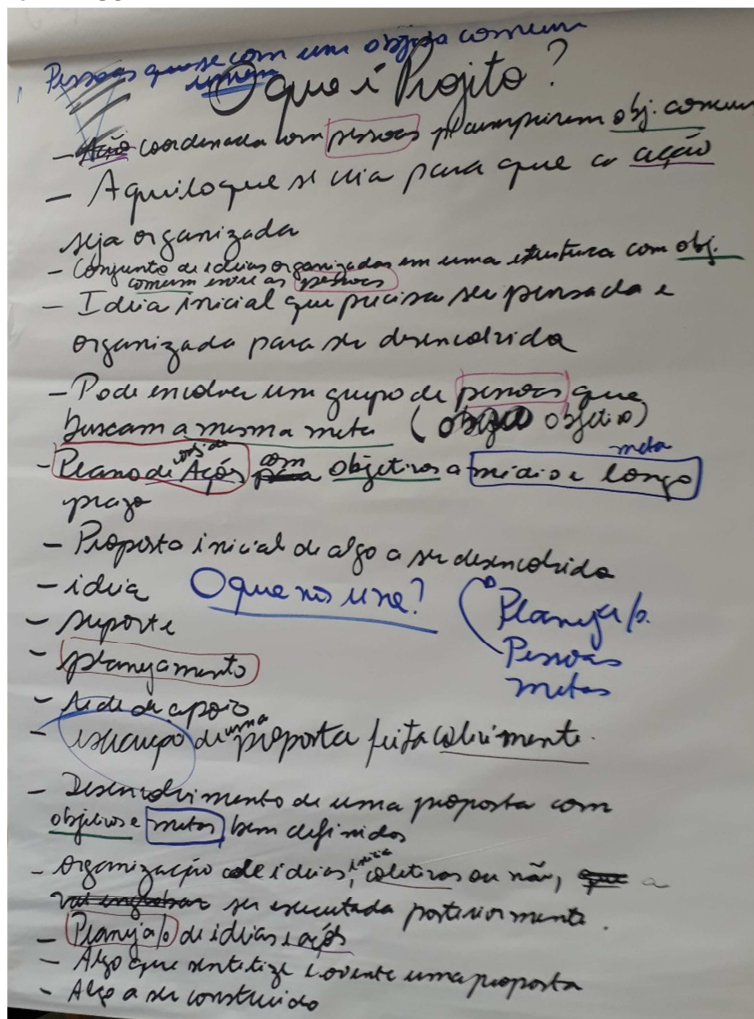 Pessoas que se com um objeto comum
unem
O que é Projeto?
- Ação coordenada com pessoas p/ cumprirem obj. comum
- Aquilo que se cria para que a ação
seja organizada
- Conjunto de ideias organizadas em uma estrutura com obj.
comum entre as pessoas
- Ideia inicial que precisa ser pensada e
organizada para ser desenvolvida
- Pode envolver um grupo de pessoas que
buscam a mesma meta ( objetivo)
meta
- Plano de Ações com objetivos a médio e longo
prazo
- Proposta inicial de algo a ser desenvolvida
- ideia
O que nos une?
Planeja/o.
- suporte
Pessoas
- planejamento
metas
- rede de apoio
- execução de uma proposta feita coletivamente.
- Desenvolvimento de uma proposta com
objetivos e metas bem definidos
- organização de ideias, coletivas ou não, a
ser executada posteriormente.
- Planeja/o de ideias e ações
- Algo que sintetize e oriente uma proposta
- Algo a ser construído